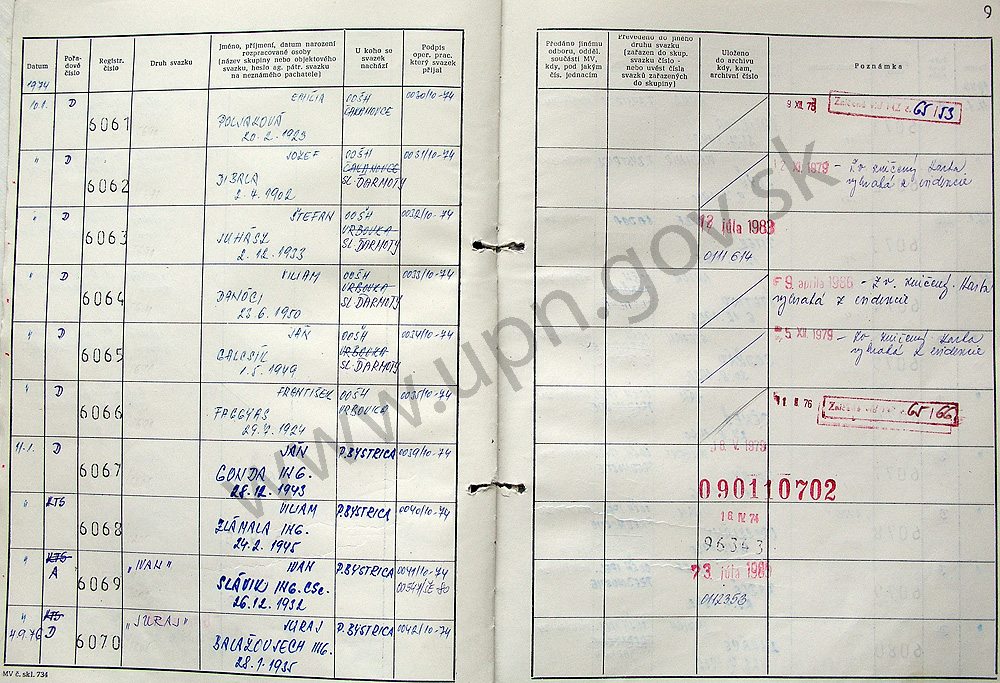 9
Datum
Pořadové číslo
Registr. číslo
Druh svazku
Jméno, příjmení, datum narození rozpracované osoby (název skupiny nebo objektového svazku, heslo ag. pátr. svazku na neznámého pachatele)
U koho se svazek nachází
Podpis oper. prac. který svazek přijal
Předáno jinému odboru, odděl. součásti MV, kdy, pod jakým čís. jednacím
Převedeno do jiného druhu svazku (zařazen do skup. svazku číslo - nebo uvést čísla svazků zařazených do skupiny)
Uloženo do archivu kdy, kam, archivní číslo
Poznámka
1974
10.1. D 6061 EMÍLIA
POLJAKOVÁ
20.2.1923
OOŠH
ČAKANOVCE
0030/10-74
9 XII. 75
65/53
" D 6062 JOZEF
2.4.1902
OOŠH
ČAKANOVCE
SL. ĎARMOTY
0031/10-74
XI. 1979 - Zv. zničený karta
vybratá z evidencie
" D 6063 ŠTEFAN
JUHÁSZ
2.12.1933
OOŠH
VRBOVKA
SL. ĎARMOTY
0032/10-74
12 júla 1983
0111614
" D 6064 VILIAM
DANÓCI
23.6.1950
OOŠH
VRBOVKA
SL. ĎARMOTY
0033/10-74
9. apríla 1986 - Zv. zničený. Karta
vybratá z evidencie
" D 6065 JÁN
GALCSÍK
1.5.1949
OOŠH
VRBOVKA
SL. ĎARMOTY
0034/10-74
5 XII. 1979 - Zv. zničený karta
vybratá z evidencie
" D 6066 FRANTIŠEK
FAGGYAS
29.7.1924
OOŠH
VRBOVKA
0035/10-74
76
65/66
11.1. D 6067 JÁN
GONDA ING.
28.12.1943
P.BYSTRICA
0039/10-74
V. 1979
090110702
" KTS 6068 VILIAM
ZLÁMALA ING.
24.2.1945
P.BYSTRICA
0040/10-74
16 IV. 74
96343
" KTS
A 6069 "IVAN" IVAN
SLÁVIK ING. CSc.
26.12.1932
P.BYSTRICA
0041/10-74
júla 198
0112353
" KTS
4.9.76 D 6070 "JURAJ" JURAJ
BALAŽOVJECH ING.
28.1.1935
P.BYSTRICA
0042/10-74
MV č. skl. 734
www.upn.gov.sk